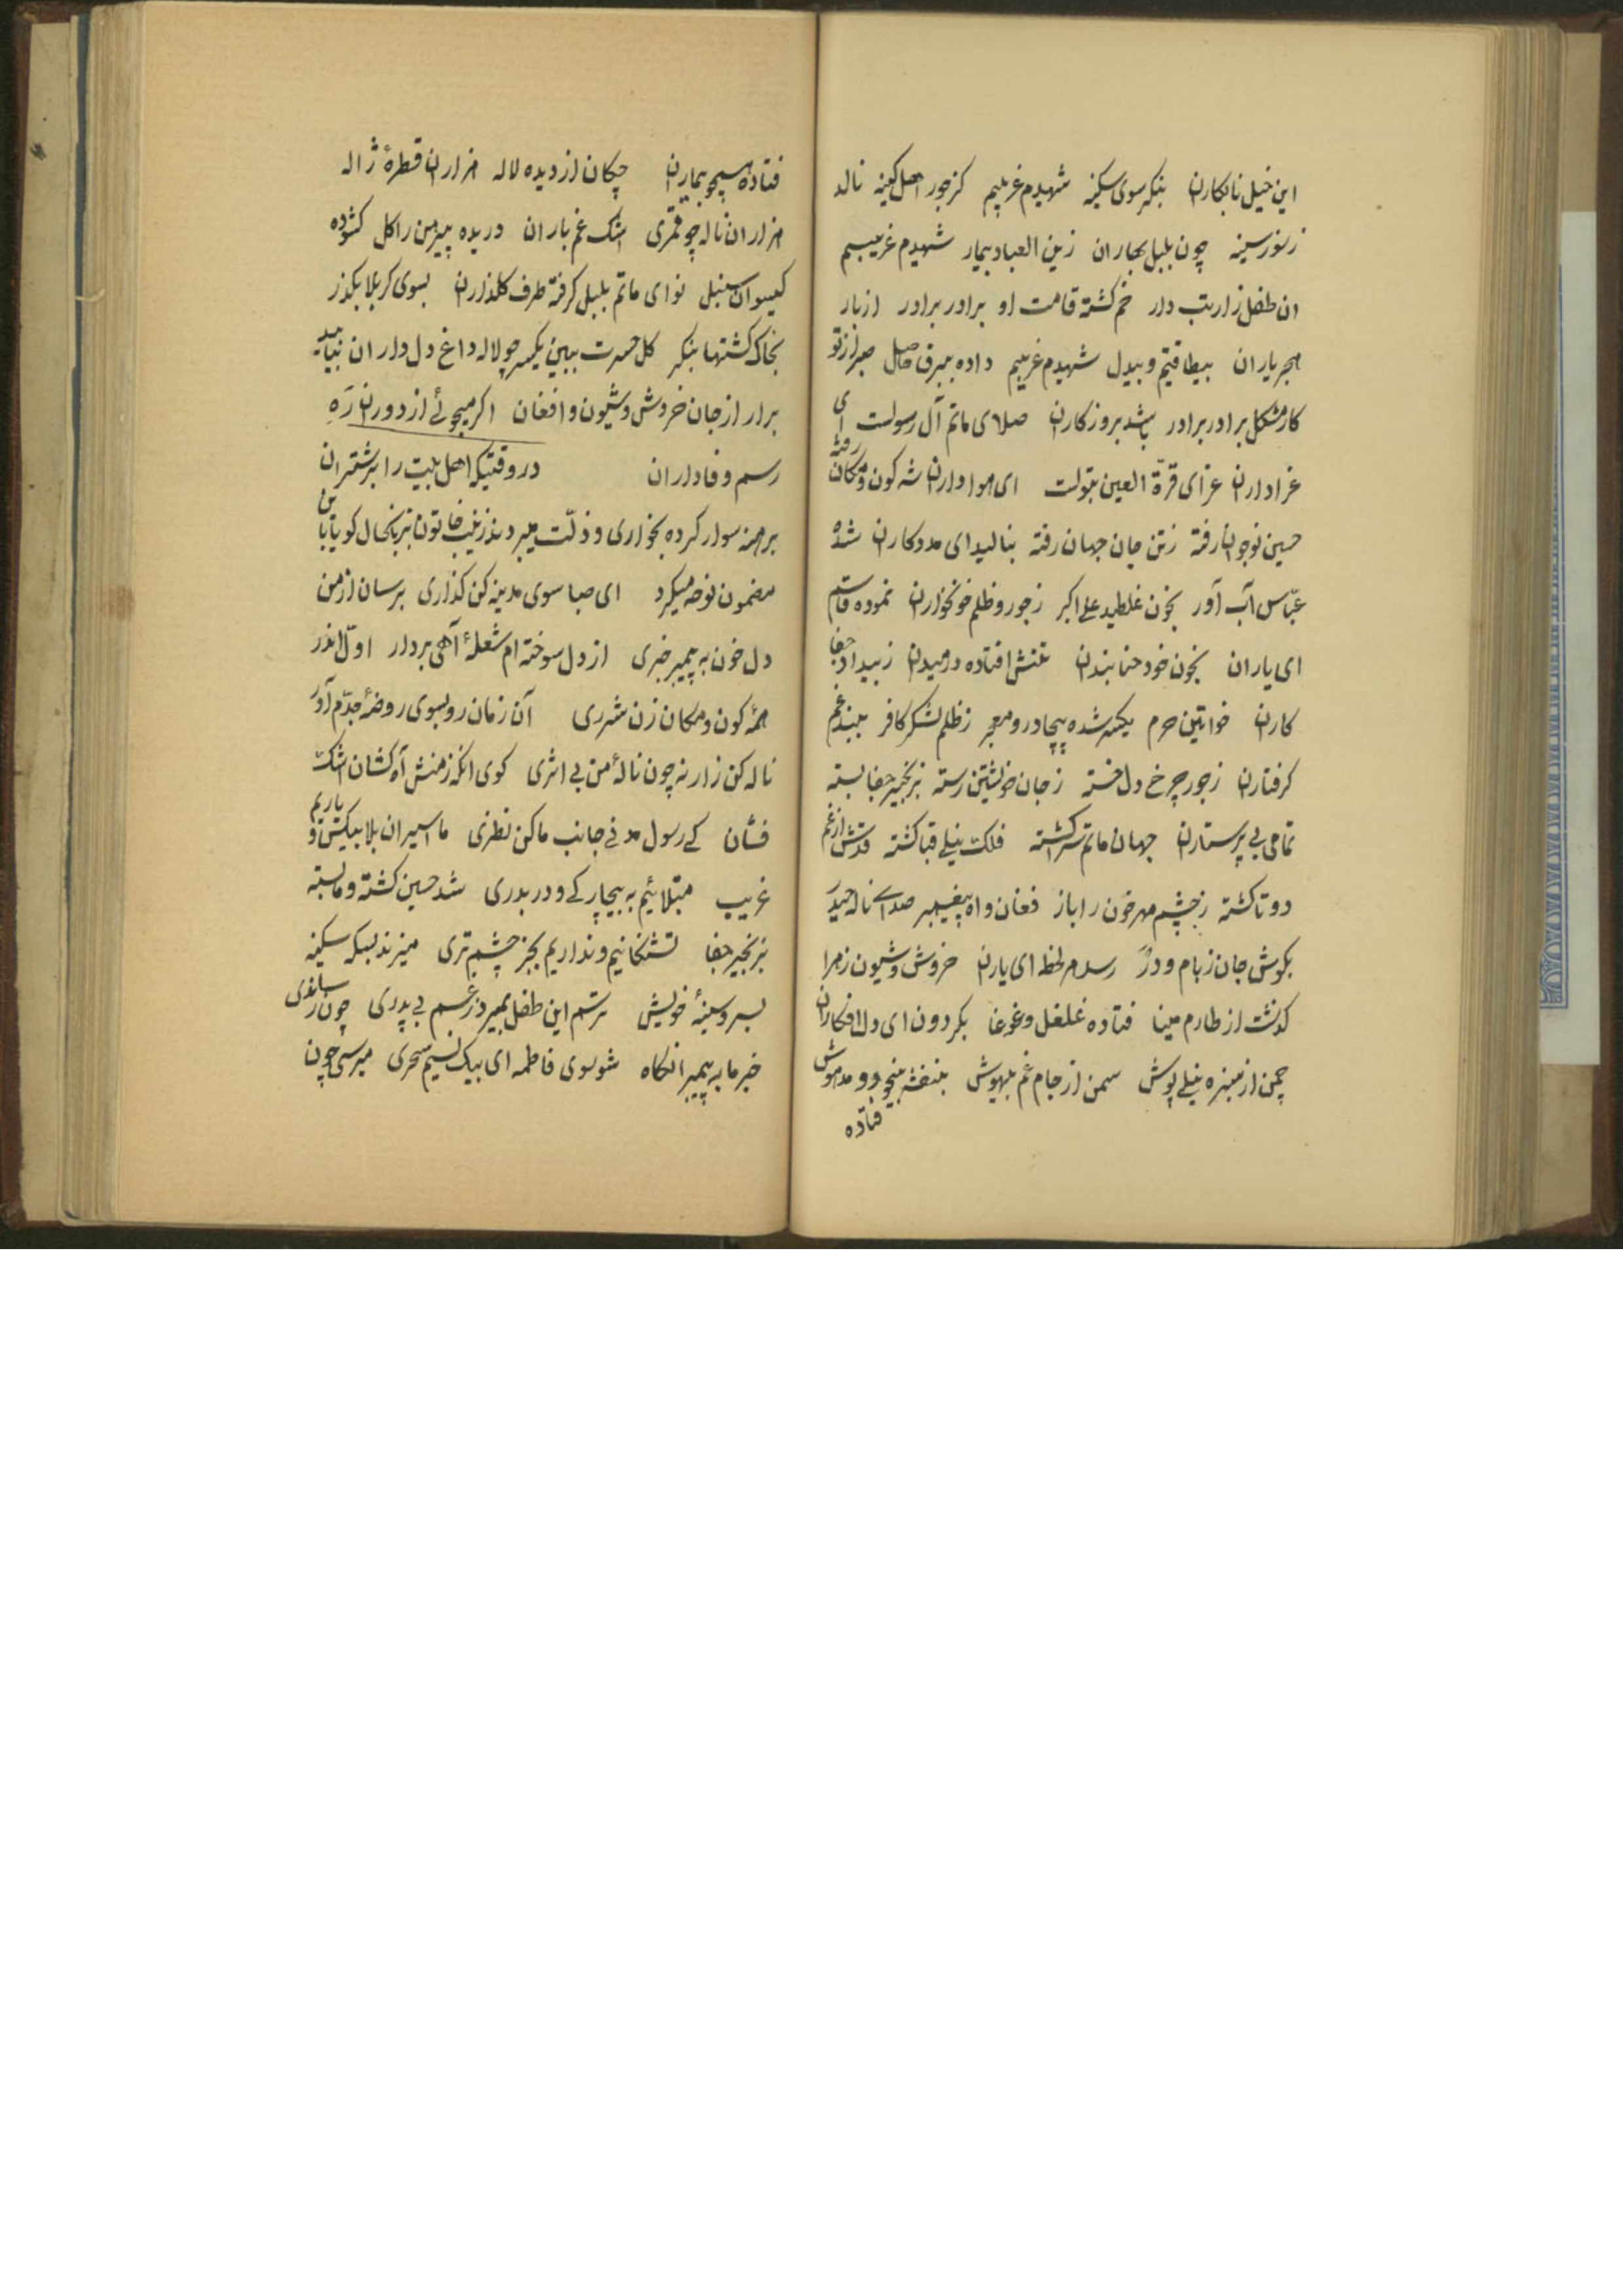 این خیل نابکاران بنکر سوی سکینه شهیدم غریبم کز جور اهل کینه نالد
ز سوز سینه چون بلبل بهاران زین العباد بیمار شهیدم غریبم
ان طفل زار تب دار خم کشته قامت او برادر برادر از بار
هجر یاران بیطاقتیم و بیدل شهیدم غریبم داده ببرق حاصل صبر از تو
کار مشکل برادر برادر باشد بروزکاران صلای ماتم آل رسولست ای
عزاداران عزای قرّة العین بتولست ای هواداران شه کون و مکان رفته
حسین نوجوان رفته زتن جان جهان رفته بنالید ای مددکاران شده
عبّاس آب آور بخون غلطید علی اکبر زجور و ظلم خونخواران نموده قاسم
ای یاران بخون خود حنا بندان تنش افتاده در میدان زبیداد جفا
کاران خواتین حرم یکسر شده بیچادر و معجر زظلم لشکر کافر ببند غم
کرفتاران زجور چرخ دل خسته زجان خویشتن رسته بزنجیر جفا بسته
تمامی بی پرستاران جهان ماتم سرا کشته فلک نیلی قبا کشته قدش از غم
دوتا کشته زچشم مهر خون را باز فغان و اه پیغمبر صدای ناله حیدر
بکوش جان زبام و در رسد هر لحظه ای یاران خروش و شیون زهرا
کذشت از طارم مینا فتاده غلغل و غوغا بکردون ای دل افکاران
چمن از سبزه نیلی پوش سمن از جام غم بیهوش بنفشه بیخود و مدهوش
فتاده
فتاده همچو بیماران چکان از دیده لاله هزاران قطرهٔ ژاله
هزاران ناله چو قمری اشک غم باران دریده پیرهن را کل کشوده
کیسوان سنبل نوای ماتم بلبل کرفته طرف کلذاران بسوی کربلا بکذر
بخاک کشتها بنکر کل حسرت ببین یکسر چو لاله داغ دل داران نیاید
برار از جان خروش و شیون و افغان اکر میجوئی از دوران ره
رسم وفاداران در وقتیکه اهل بیت را بر شتران
برهنه سوار کرده بخواری و ذلّت میبردند زینب خاتون بزبانحال کویا باین
مضمون نوحه میکرد ای صبا سوی مدینه کن کذاری برسان از من
دل خون به پیمبر خبری از دل سوخته ام شعلهٔ آهی بردار اوّل اندر
همهٔ کون و مکان زن شرری آن زمان رو بسوی روضهٔ جدّم آور
ناله کن زار نه چون نالهٔ من بی اثری کوی انکه زمنش آه کشان اشک
فشان کی رسول مدنی جانب ما کن نظری ما اسیران بلا بیکس و یاریم
غریب مبتلائیم به بیچارکی و دربدری شد حسین کشته و ما بسته
بزنجیر جفا تشنکانیم و نداریم بجز چشم تری میزند بسکه سکینه
بسر و سینهٔ خویش ترسم این طفل بمیرد زغم بی پدری چون رساندی
خبر ما به پیمبر انکاه شو بسوی فاطمه ای پیک نسیم سحری میرسی چون